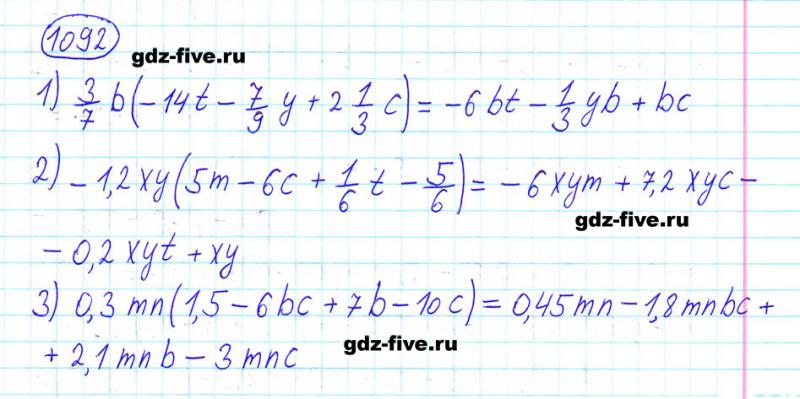 1092
gdz-five.ru
1) 3/7 b(-14t - 7/9 y + 2 1/3 c) = -6bt - 1/3 yb + bc
2) -1,2xy(5m - 6c + 1/6 t - 5/6) = -6xym + 7,2xyc -
gdz-five.ru
- 0,2xyt + xy
3) 0,3mn(1,5 - 6bc + 7b - 10c) = 0,45mn - 1,8mnbc +
+ 2,1mnb - 3mnc
gdz-five.ru